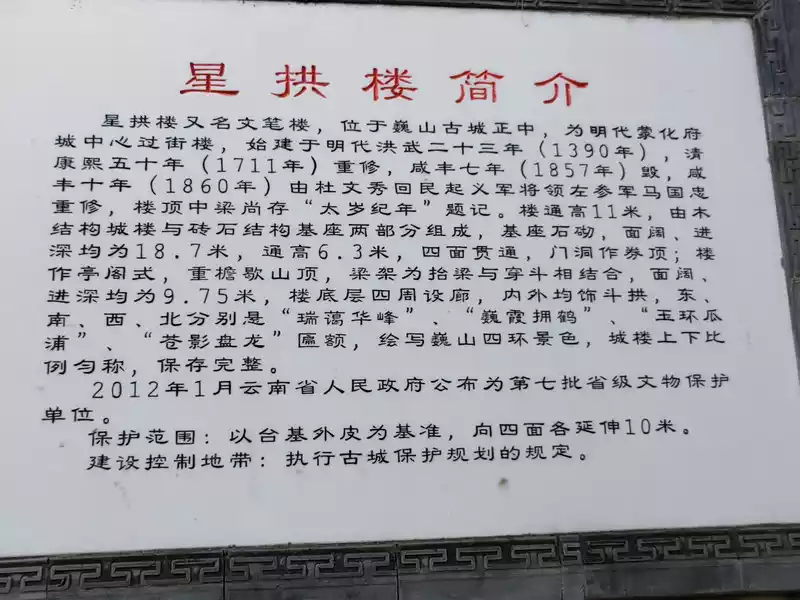 星拱楼简介
星拱楼又名文笔楼，位于巍山古城正中，为明代蒙化府
城中心过街楼，始建于明代洪武二十三年（1390年），清
康熙五十年（1711年）重修，咸丰七年（1857年）毁，咸
丰十年（1860年）由杜文秀回民起义军将领左参军马国忠
重修，楼顶中梁尚存“太岁纪年”题记。楼通高11米，由木
结构城楼与砖石结构基座两部分组成，基座石砌，面阔、进
深均为18.7米，通高6.3米，四面贯通，门洞作券顶；楼
作亭阁式，重檐歇山顶，梁架为抬梁与穿斗相结合，面阔、
进深均为9.75米，楼底层四周设廊，内外均饰斗拱，东、
南、西、北分别是“瑞蔼华峰”、“巍霞拥鹤”、“玉环瓜
浦”、“苍影盘龙”匾额，绘写巍山四环景色，城楼上下比
例匀称，保存完整。
2012年1月云南省人民政府公布为第七批省级文物保护
单位。
保护范围：以台基外皮为基准，向四面各延伸10米。
建设控制地带：执行古城保护规划的规定。